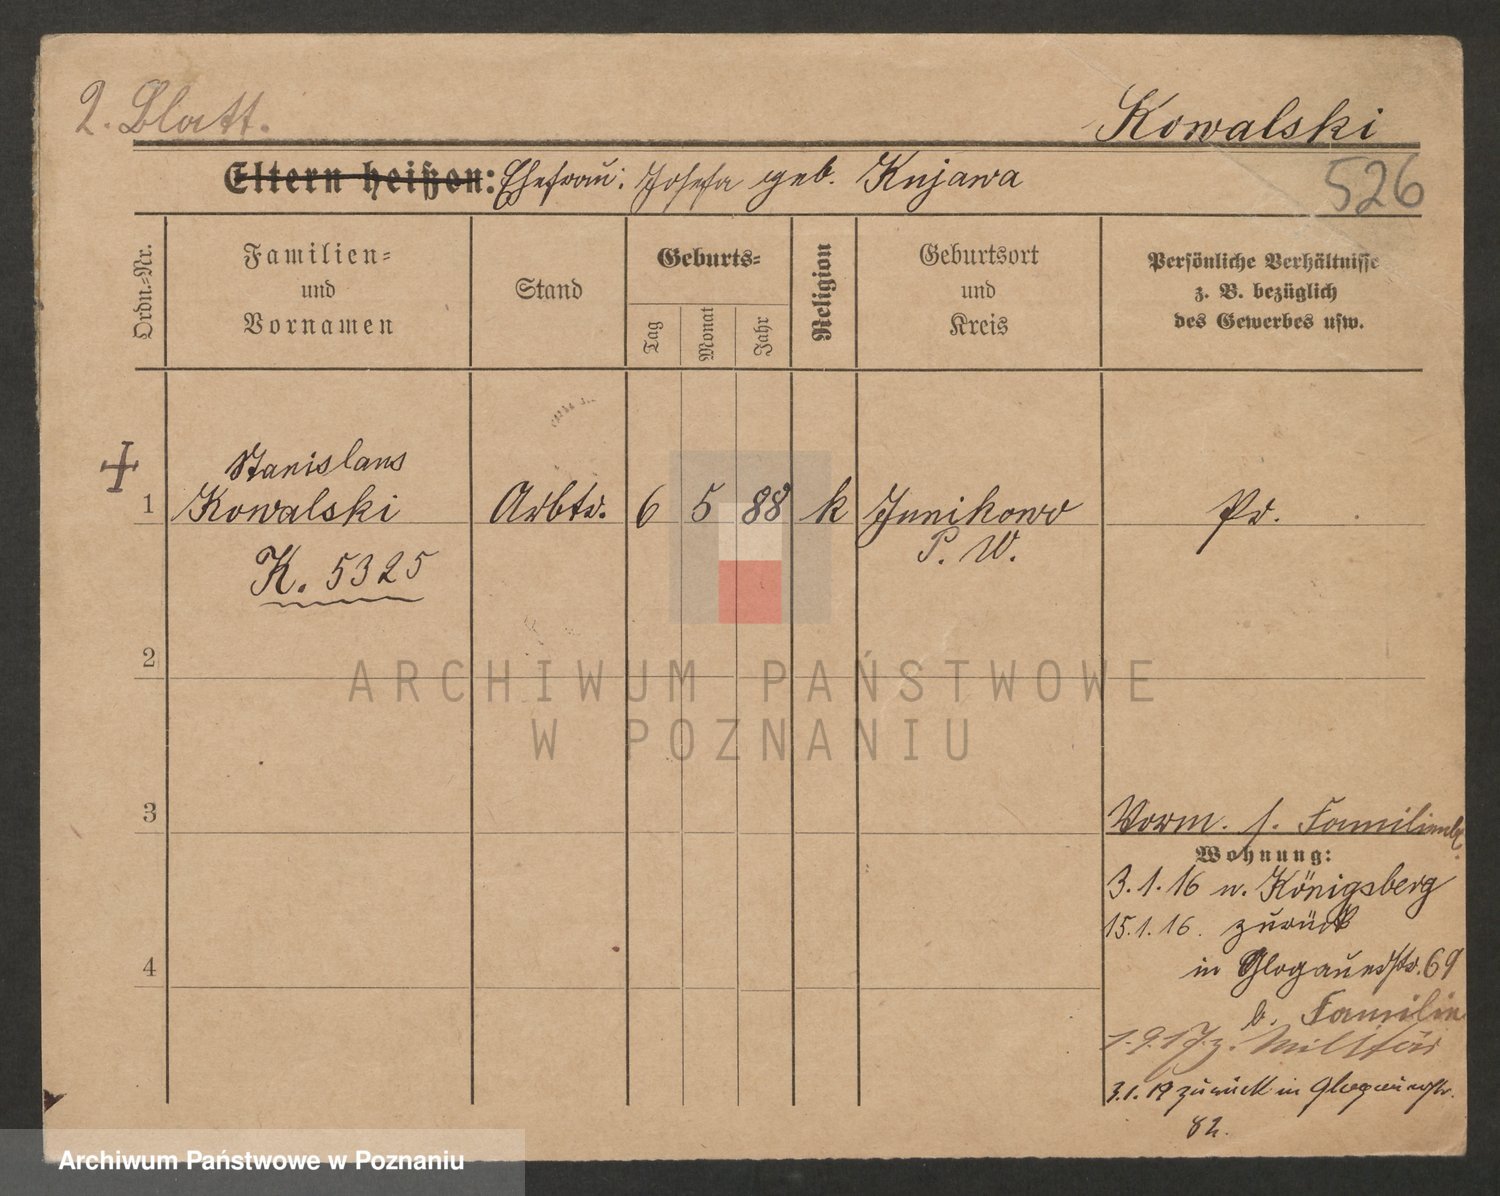 2. Blatt.
Kowalski
Eltern heißen: Ehefrau: Josefa geb. Kujawa
526
Ordn.-Nr.
Familien-
und
Vornamen
Stand
Geburts-
Tag
Monat
Jahr
Religion
Geburtsort
und
Kreis
Persönliche Verhältnisse
z. B. bezüglich
des Gewerbes usw.
Stanislaus
1 Kowalski Arbtr. 6 5 88 k Junikowo Pr.
P. W.
K. 5325
2
ARCHIWUM PAŃSTWOWE
W POZNANIU
3
Vorm. s. Familienbl.
Wohnung:
3.1.16 n. Königsberg
15.1.16. zurück
4
in Glogauerstr. 69
b. Familie
1.9.17 z. Militär
3.1.19 zurück in Glogauerstr.
82.
Archiwum Państwowe w Poznaniu